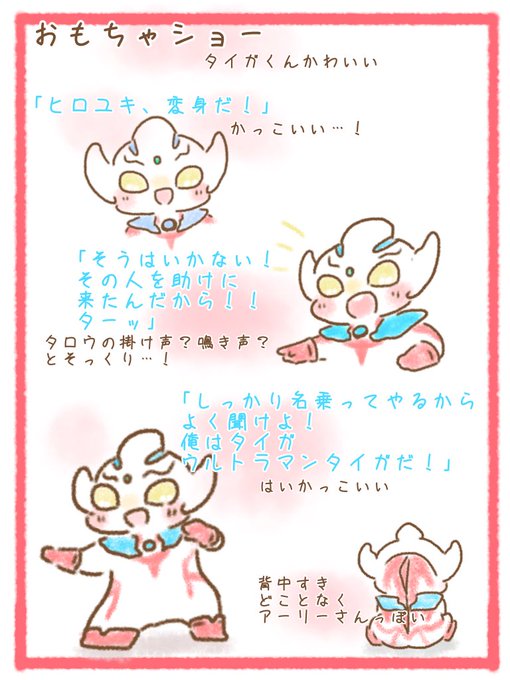 おもちゃショー
タイガくんかわいい
「ヒロユキ、変身だ！」
かっこいい…！
「そうはいかない！
その人を助けに
来たんだから！！
ターッ」
タロウの掛け声？鳴き声？
とそっくり…！
「しっかり名乗ってやるから
よく聞けよ！
俺はタイガ
ウルトラマンタイガだ！」
はいかっこいい
背中すき
どことなく
アーリーさんっぽい